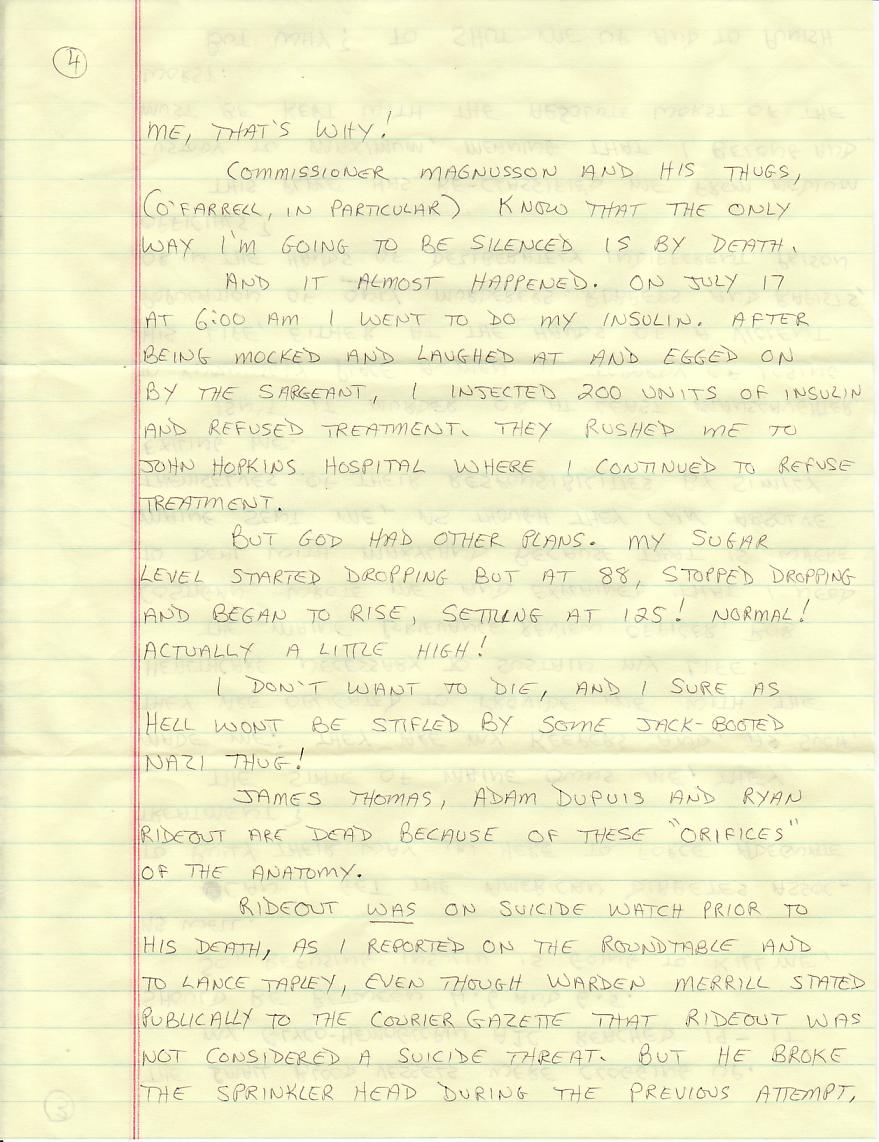 4
ME, THAT'S WHY!
COMMISSIONER MAGNUSSON AND HIS THUGS,
(O'FARRELL, IN PARTICULAR) KNOW THAT THE ONLY
WAY I'M GOING TO BE SILENCED IS BY DEATH.
AND IT ALMOST HAPPENED. ON JULY 17
AT 6:00 AM I WENT TO DO MY INSULIN. AFTER
BEING MOCKED AND LAUGHED AT AND EGGED ON
BY THE SARGEANT, I INJECTED 200 UNITS OF INSULIN
AND REFUSED TREATMENT. THEY RUSHED ME TO
JOHN HOPKINS HOSPITAL WHERE I CONTINUED TO REFUSE
TREATMENT.
BUT GOD HAD OTHER PLANS. MY SUGAR
LEVEL STARTED DROPPING BUT AT 88, STOPPED DROPPING
AND BEGAN TO RISE, SETTLING AT 125! NORMAL!
ACTUALLY A LITTLE HIGH!
I DON'T WANT TO DIE, AND I SURE AS
HELL WONT BE STIFLED BY SOME JACK-BOOTED
NAZI THUG!
JAMES THOMAS, ADAM DUPUIS AND RYAN
RIDEOUT ARE DEAD BECAUSE OF THESE "ORIFICES"
OF THE ANATOMY.
RIDEOUT WAS ON SUICIDE WATCH PRIOR TO
HIS DEATH, AS I REPORTED ON THE ROUNDTABLE AND
TO LANCE TAPLEY, EVEN THOUGH WARDEN MERRILL STATED
PUBLICALLY TO THE COURIER GAZETTE THAT RIDEOUT WAS
NOT CONSIDERED A SUICIDE THREAT. BUT HE BROKE
THE SPRINKLER HEAD DURING THE PREVIOUS ATTEMPT,